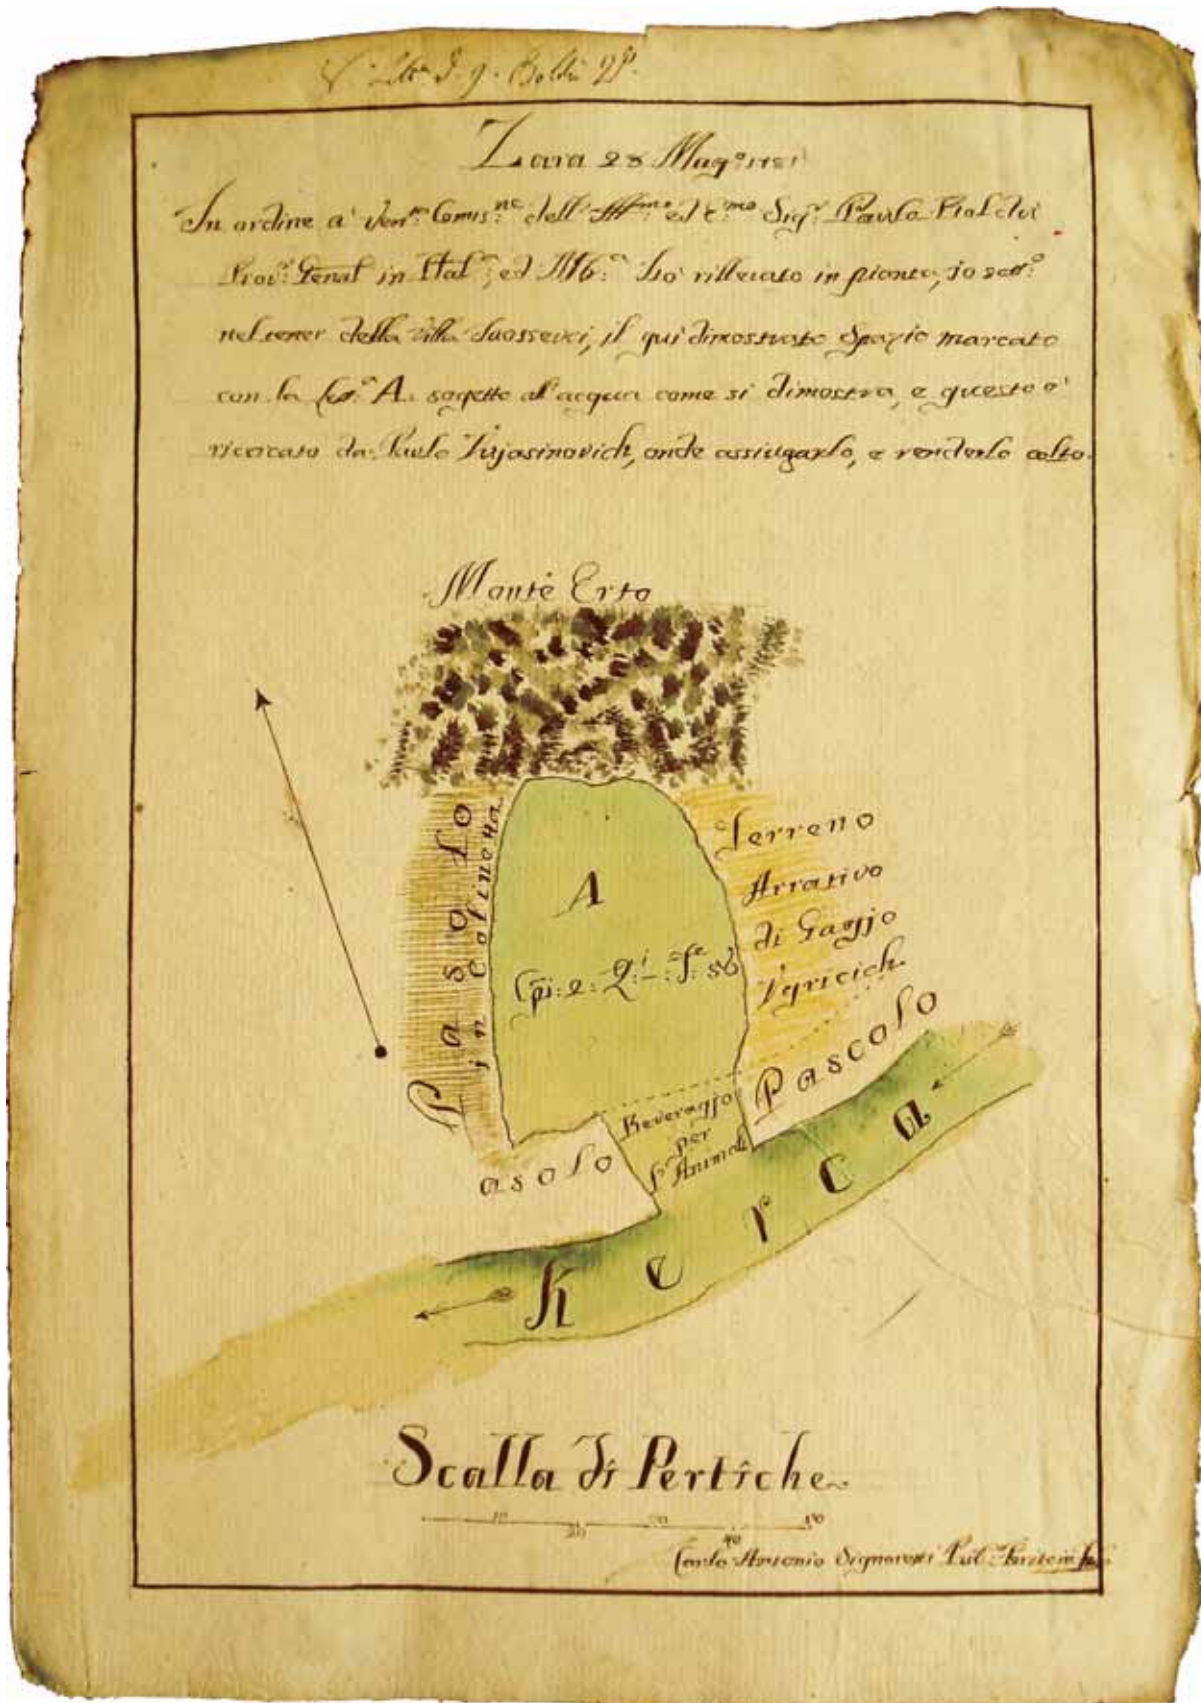 Zara 28 Mag:º
In ordine a' Ven:ta Comis:ne dell' Ill:mo ed E:mo Sig:r Paulo
Prov:r Genal in Dal:a, ed Alb:a hò rillevato in pianta, jo sott:o
nel tener della villa Suossevci, il qui dimostrato Spazio marcato
con la Let:a A. sogetto al'acqua come si dimostra, e questo è
ricercato da Paulo Vujasinovich, onde assiugarlo, e renderlo colto.
Monte Erto
Pasolo
in Colinetta
A
Cpi: 2: Q:i -: T:e
Terreno
Arrativo
di Gaggjo
Pascolo
Beveraggjo
per
l' Animali
asolo
Kerca
Scalla di Pertiche
10 20 30 40 50
Carlo Antonio Signoretti Pub:o Perito